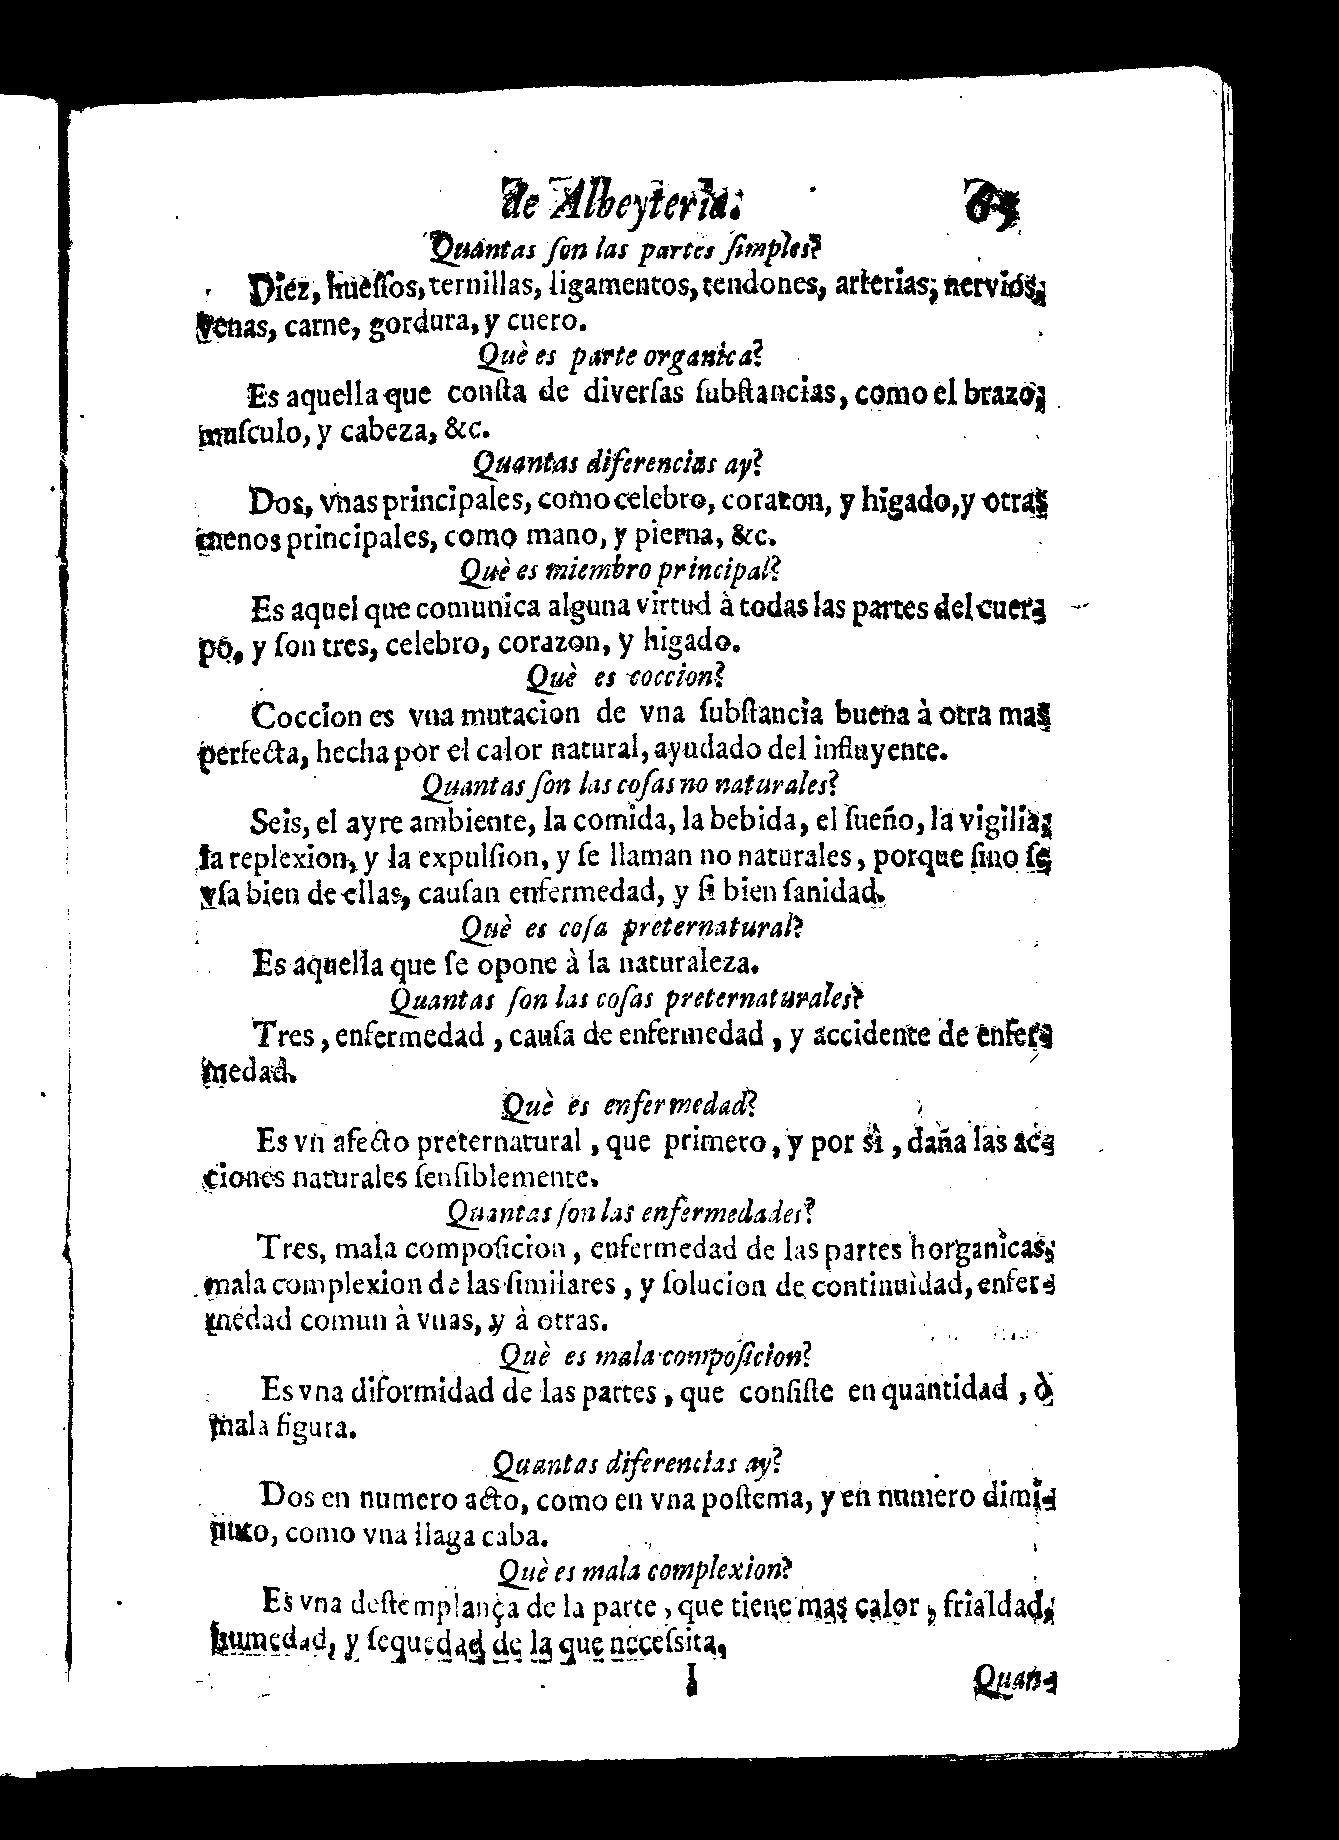 de Albeyteria. 65
Quantas ſon las partes ſimples?
Diez, hueſſos, ternillas, ligamentos, tendones, arterias, nervios,
venas, carne, gordura, y cuero.
Què es parte organica?
Es aquella que conſta de diverſas ſubſtancias, como el brazo,
muſculo, y cabeza, &c.
Quantas diferencias ay?
Dos, vnas principales, como celebro, coraton, y higado, y otras
menos principales, como mano, y pierna, &c.
Què es miembro principal?
Es aquel que comunica alguna virtud à todas las partes del cuer-
po, y ſon tres, celebro, corazon, y higado.
Què es coccion?
Coccion es vna mutacion de vna ſubſtancia buena à otra mas
perfecta, hecha por el calor natural, ayudado del influyente.
Quantas ſon las coſas no naturales?
Seis, el ayre ambiente, la comida, la bebida, el ſueño, la vigilia,
la replexion, y la expulſion, y ſe llaman no naturales, porque ſino ſe
vſa bien de ellas, cauſan enfermedad, y ſi bien ſanidad.
Què es coſa preternatural?
Es aquella que ſe opone à la naturaleza.
Quantas ſon las coſas preternaturales?
Tres, enfermedad, cauſa de enfermedad, y accidente de enfer-
medad.
Què es enfermedad?
Es vn afecto preternatural, que primero, y por sì, daña las ac-
ciones naturales ſenſiblemente.
Quantas ſon las enfermedades?
Tres, mala compoſicion, enfermedad de las partes horganicas,
mala complexion de las ſimilares, y ſolucion de continuidad, enfer-
medad comun à vnas, y à otras.
Què es mala compoſicion?
Es vna diformidad de las partes, que conſiſte en quantidad, ò
mala figura.
Quantas diferencias ay?
Dos en numero acto, como en vna poſtema, y en numero dimi-
nuto, como vna llaga caba.
Què es mala complexion?
Es vna deſtemplança de la parte, que tiene mas calor, frialdad,
humedad, y ſequedad de la que neceſsita,
I Quan-